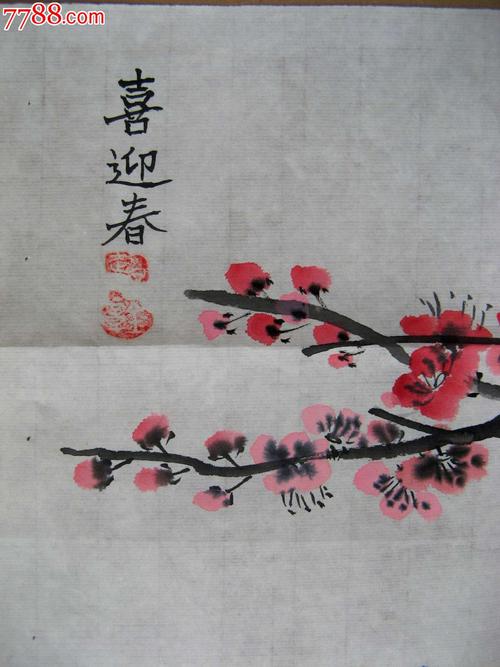 7788.com
喜迎春